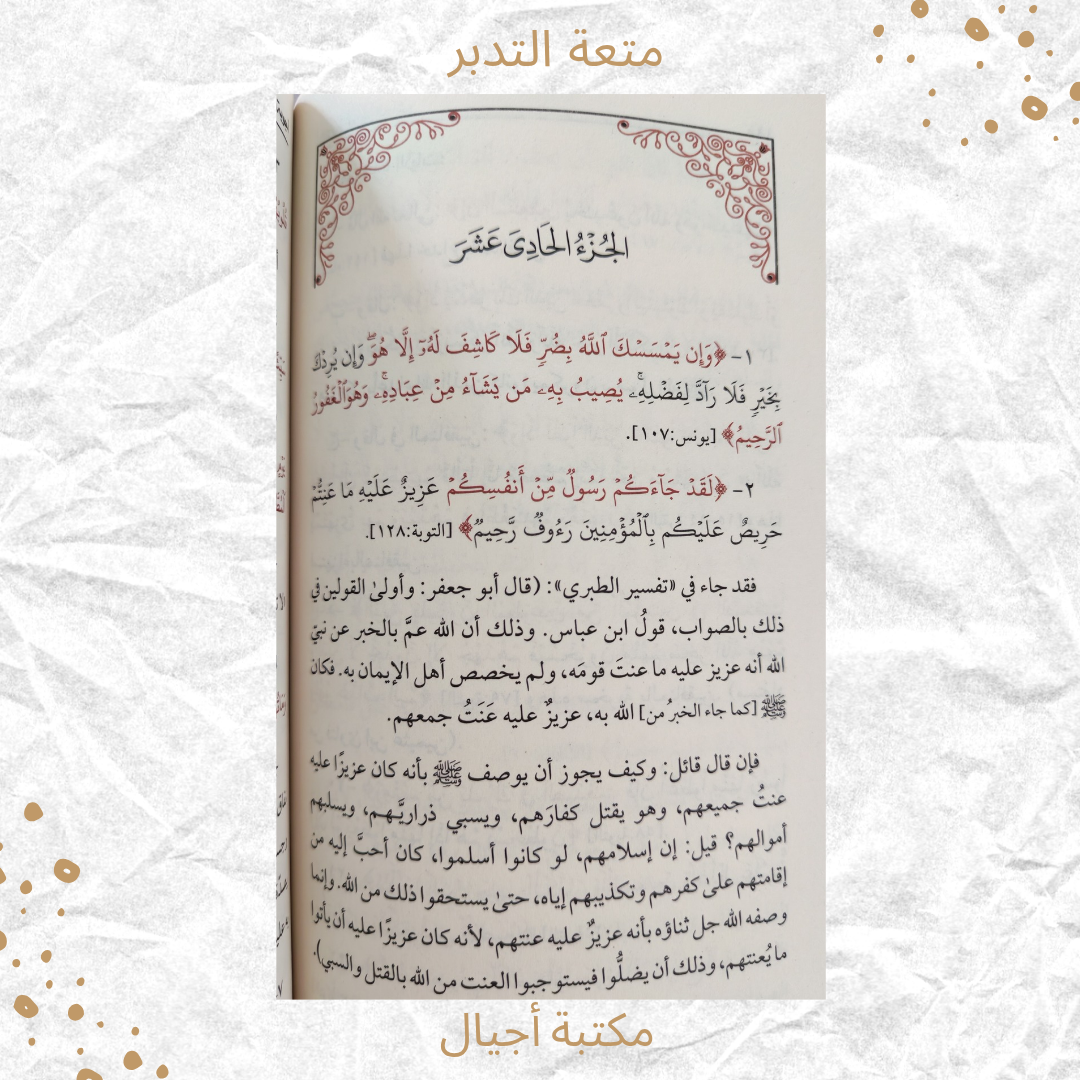 متعة التدبر
الجُزْءُ الحَادِيَ عَشَرَ
١- ﴿وَإِن يَمْسَسْكَ ٱللَّهُ بِضُرٍّ فَلَا كَاشِفَ لَهُۥٓ إِلَّا هُوَۖ وَإِن يُرِدْكَ
بِخَيْرٍ فَلَا رَآدَّ لِفَضْلِهِۦۚ يُصِيبُ بِهِۦ مَن يَشَآءُ مِنْ عِبَادِهِۦۚ وَهُوَٱلْغَفُورُ
ٱلرَّحِيمُ﴾ [يونس:١٠٧].
٢- ﴿لَقَدْ جَآءَكُمْ رَسُولٌ مِّنْ أَنفُسِكُمْ عَزِيزٌ عَلَيْهِ مَا عَنِتُّمْ
حَرِيصٌ عَلَيْكُم بِٱلْمُؤْمِنِينَ رَءُوفٌ رَّحِيمٌ﴾ [التوبة:١٢٨].
فقد جاء في «تفسير الطبري»: (قال أبو جعفر: وأولىٰ القولين في
ذلك بالصواب، قولُ ابن عباس. وذلك أن الله عمَّ بالخبر عن نبيّ
الله أنه عزيز عليه ما عنتَ قومَه، ولم يخصص أهل الإيمان به. فكان
ﷺ [كما جاء الخبرُ من] الله به، عزيزٌ عليه عَنَتُ جمعهم.
فإن قال قائل: وكيف يجوز أن يوصف ﷺ بأنه كان عزيزًا عليه
عنتُ جميعهم، وهو يقتل كفارَهم، ويسبي ذراريَّهم، ويسلبهم
أموالهم؟ قيل: إن إسلامهم، لو كانوا أسلموا، كان أحبَّ إليه من
إقامتهم علىٰ كفرهم وتكذيبهم إياه، حتىٰ يستحقوا ذلك من الله. وإنما
وصفه الله جل ثناؤه بأنه عزيزٌ عليه عنتهم، لأنه كان عزيزًا عليه أن يأتوا
ما يُعنتهم، وذلك أن يضلُّوا فيستوجبوا العنت من الله بالقتل والسبي).
مكتبة أجيال